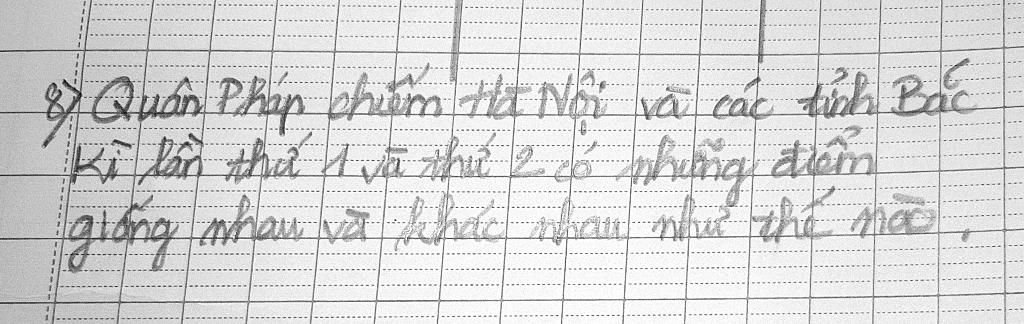 8) Quân Pháp chiếm Hà Nội và các tỉnh Bắc
Kì lần thứ 1 và thứ 2 có những điểm
giống nhau và khác nhau như thế nào.